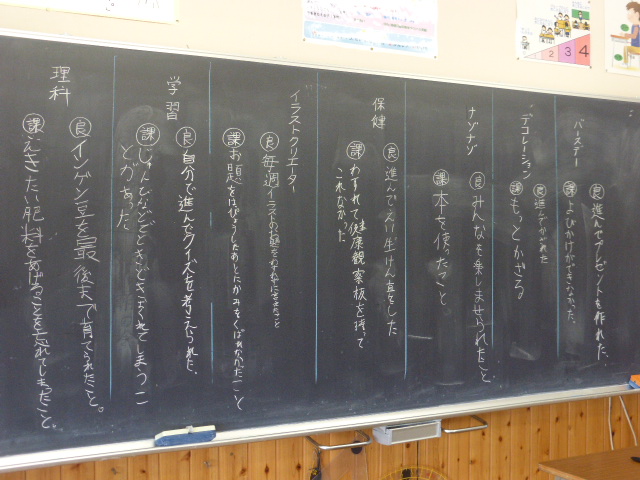 バースデー
良 進んでプレゼントを作れた。
課 よびかけができなかった。
デコレーション
良 進んでかざれた
課 もっとかざる
ナゾナゾ
良 みんなを楽しませられたこと
課 本を使ったこと
保健
良 進んでえい生けんさをした
課 わすれて健康観察板を持って
これなかった。
イラストクリエーター
良 毎週イラストのお題をわすれずにきめたこと
課 お題をはっぴょうしたあとにかみをくばれなかったこと
学習
良 自分で進んでクイズを考えられた。
課 じゅんびなどをときどきさぼってしまうこ
とがあった
理科
良 インゲン豆を最後まで育てられたこと。
課 えきたい肥料をあげることを忘れてしまったこと。
1 2 3 4